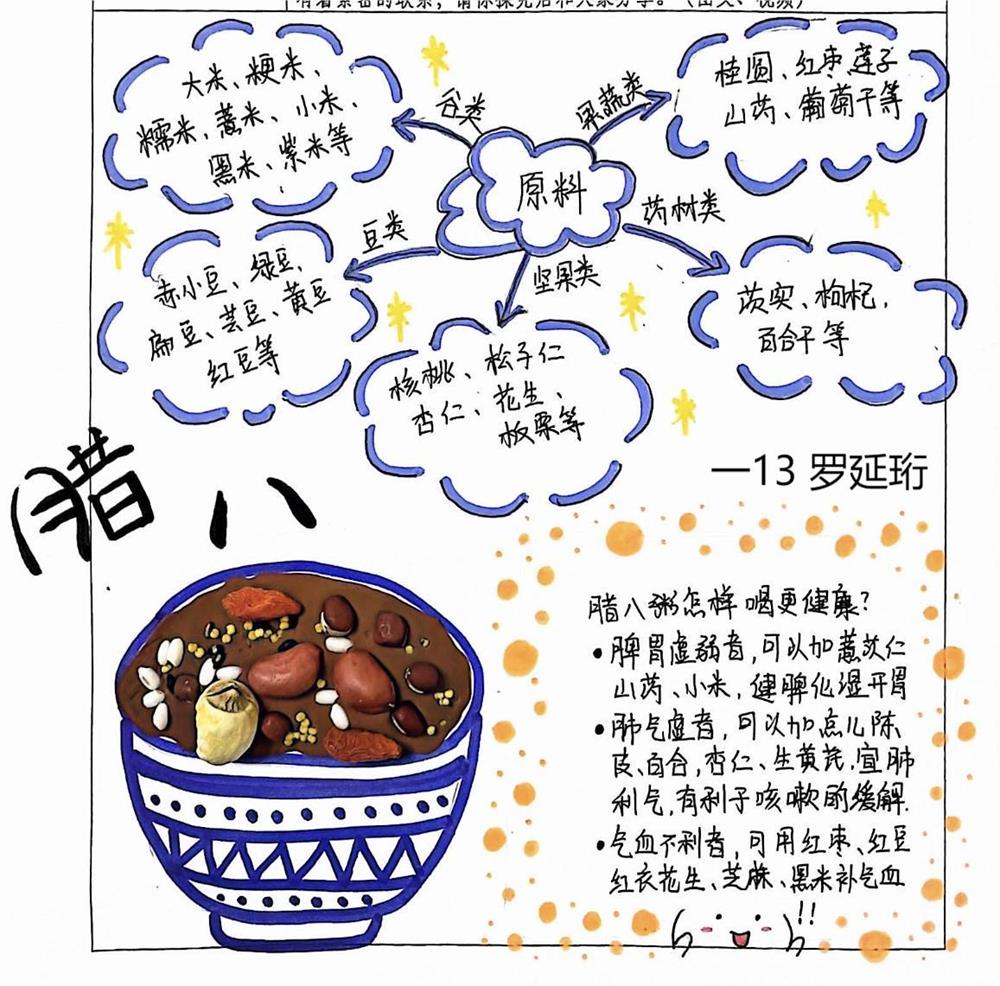 有着紧密的联系，请你探究后和大家分享。（图文、视频）
大米、粳米、
糯米、薏米、小米、
黑米、紫米等
谷类
果蔬类
桂圆、红枣、莲子
山药、葡萄干等
原料
药材类
豆类
坚果类
赤小豆、绿豆、
扁豆、芸豆、黄豆
红豆等
茨实、枸杞，
百合干等
核桃、松子仁
杏仁、花生、
板栗等
一13 罗延珩
腊八
腊八粥怎样喝更健康？
•脾胃虚弱者，可以加薏苡仁
山药、小米，健脾化湿开胃
•肺气虚者，可以加点儿陈
皮、百合，杏仁、生黄芪，宣肺
利气，有利于咳嗽的缓解.
•气血不利者，可用红枣、红豆
红衣花生、芝麻、黑米补气血
!!